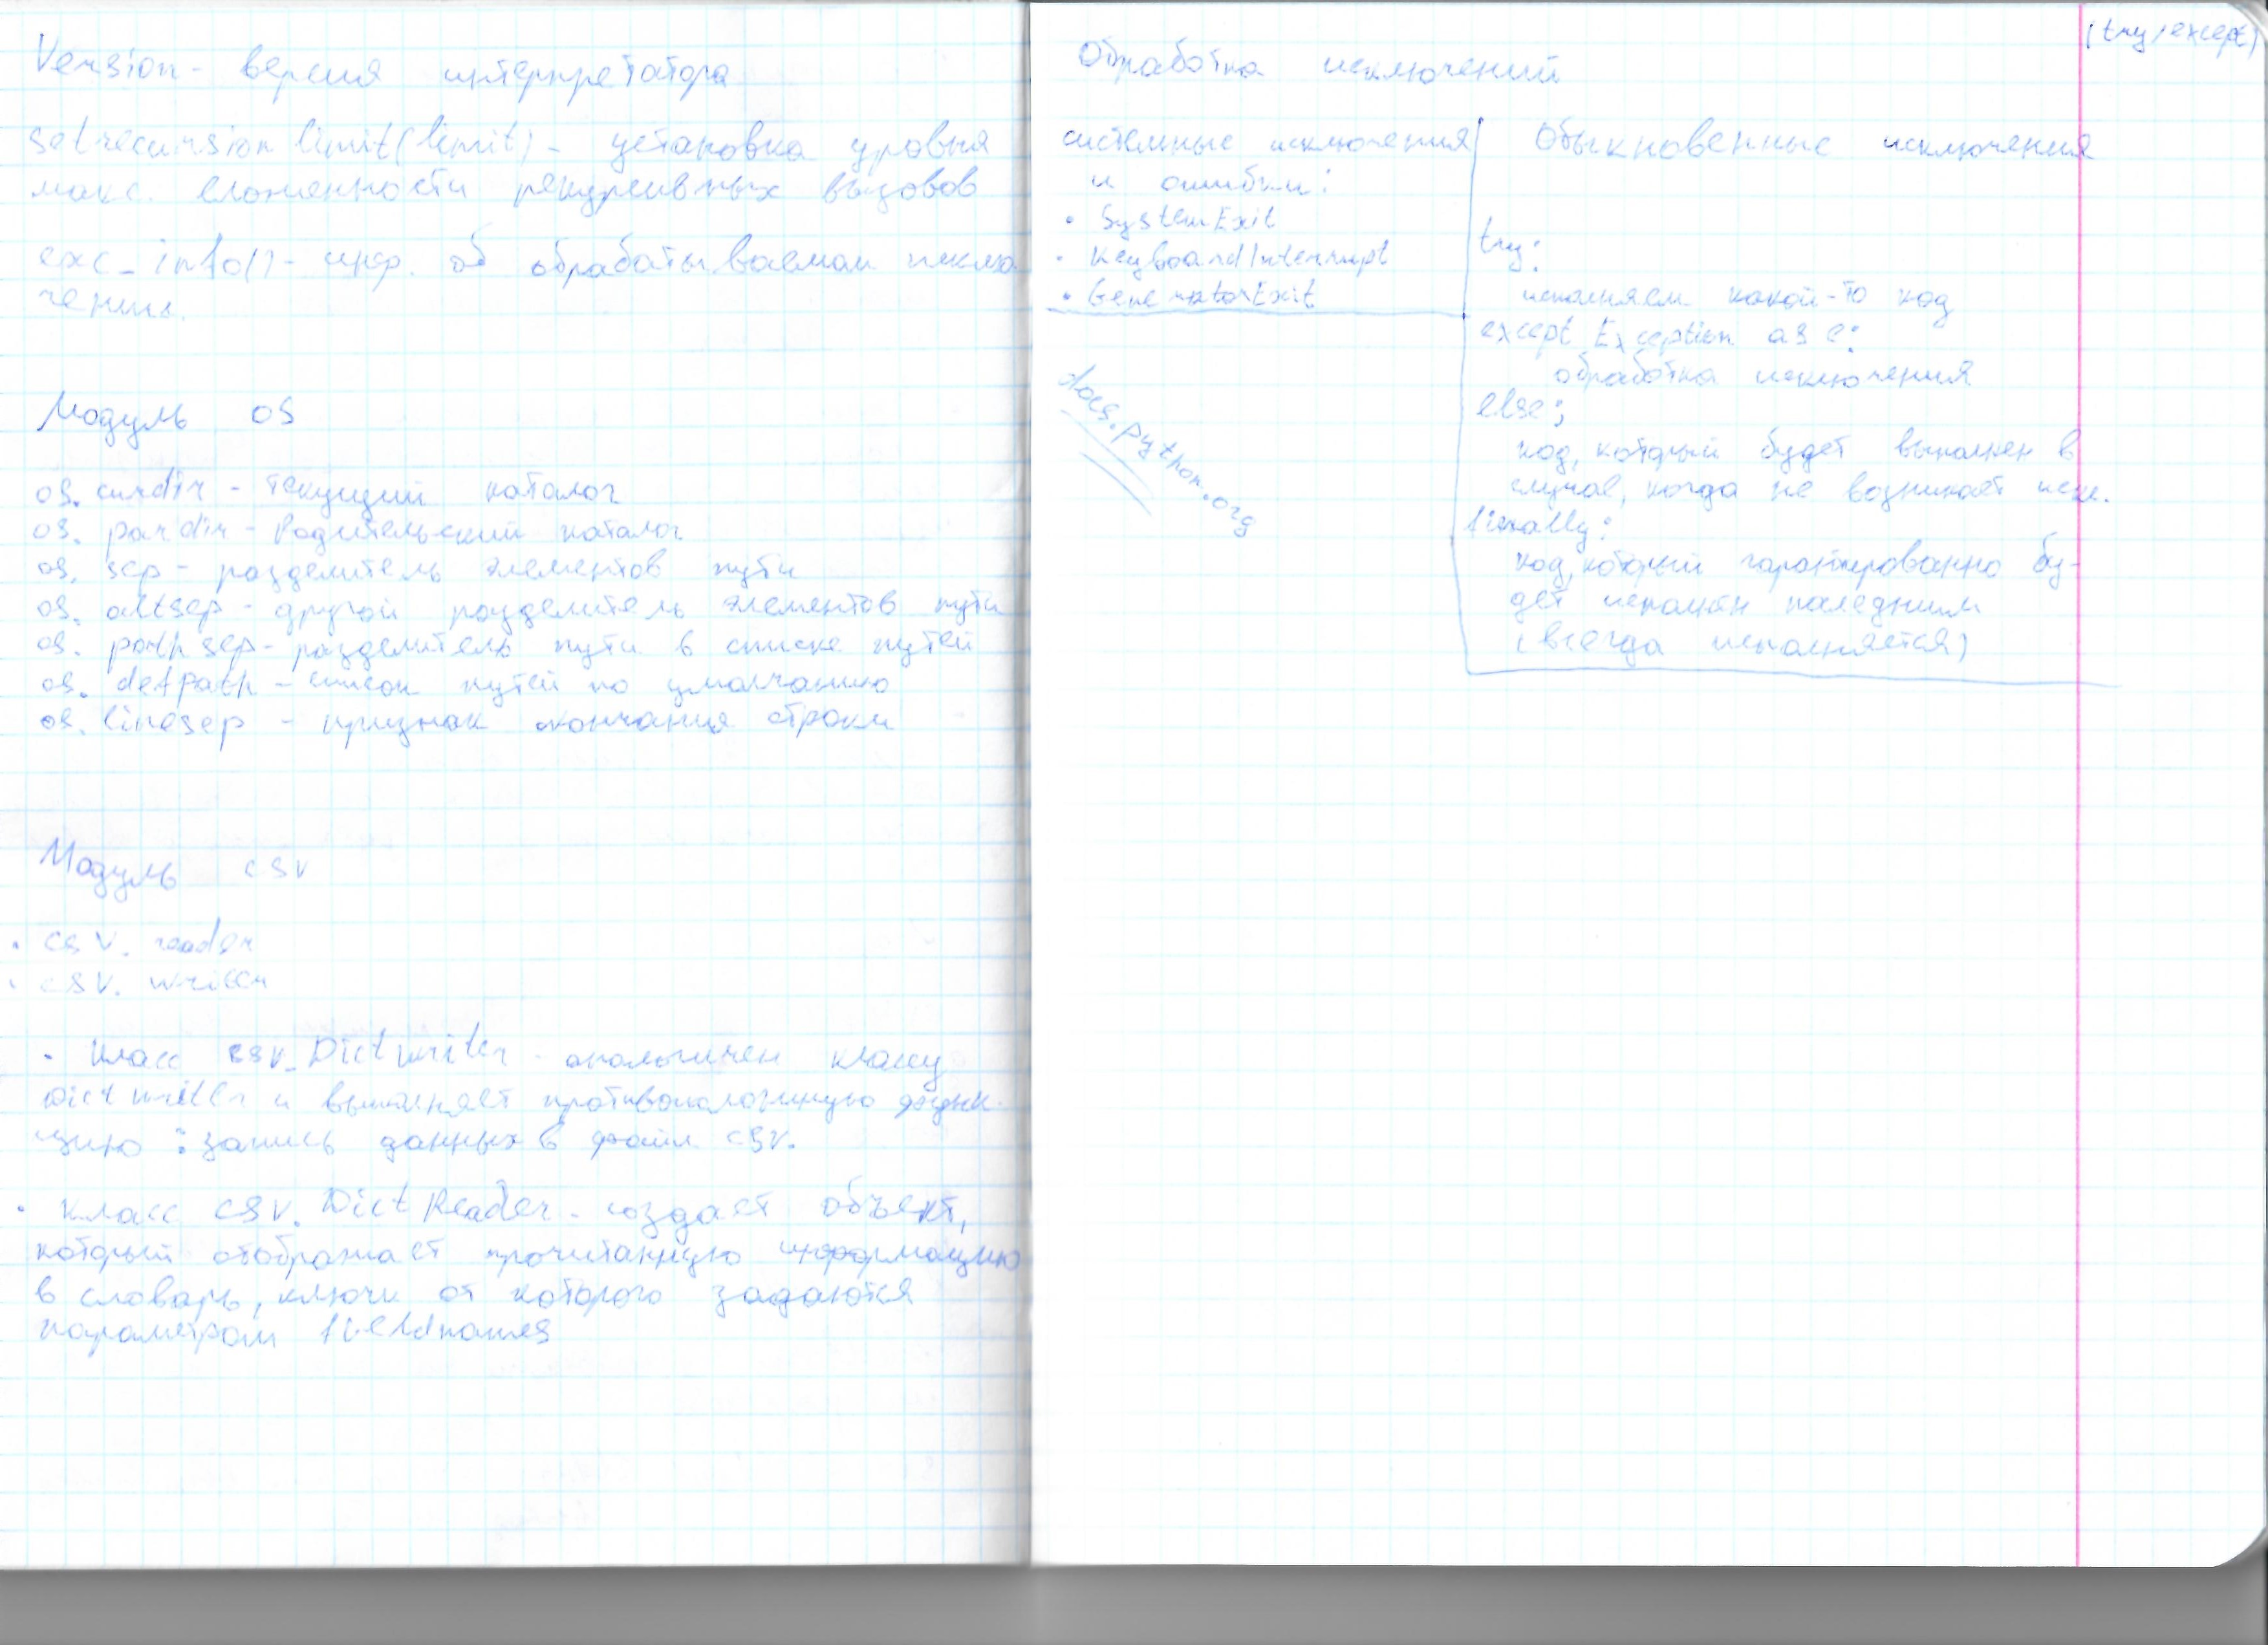 Version - версия интерпретатора
setrecursionlimit(limit) - установка уровня
макс. вложенности рекурсивных вызовов
exc_info() - инф. об обрабатываемом исклю
чении.
Модуль os
os. curdir - текущий каталог
os. pardir - Родительский каталог
os. sep - разделитель элементов пути
os. altsep - другой разделитель элементов пути
os. pathsep - разделитель пути в списке путей
os. defpath - список путей по умолчанию
os. linesep - признак окончания строки
Модуль csv
• csv. reader
• csv. writer
• Класс csv. Dictwriter - аналогичен классу
Dictwriter и выполняет противоположную функ-
цию : запись данных в файл csv.
• Класс csv. DictReader - создает объект,
который отображает прочитанную информацию
в словарь, ключи от которого задаются
параметром fieldnames
(try, except)
Обработка исключений
системные исключения
и ошибки:
• SystemExit
• KeyboardInterrupt
• GeneratorExit
docs.python.org
Обыкновенные исключения
try:
исполняем какой-то код
except Exception as e:
обработка исключения
else:
код, который будет выполнен в
случае, когда не возникает искл.
finally:
код, который гарантированно бу-
дет исполнен последним
(всегда исполняется)